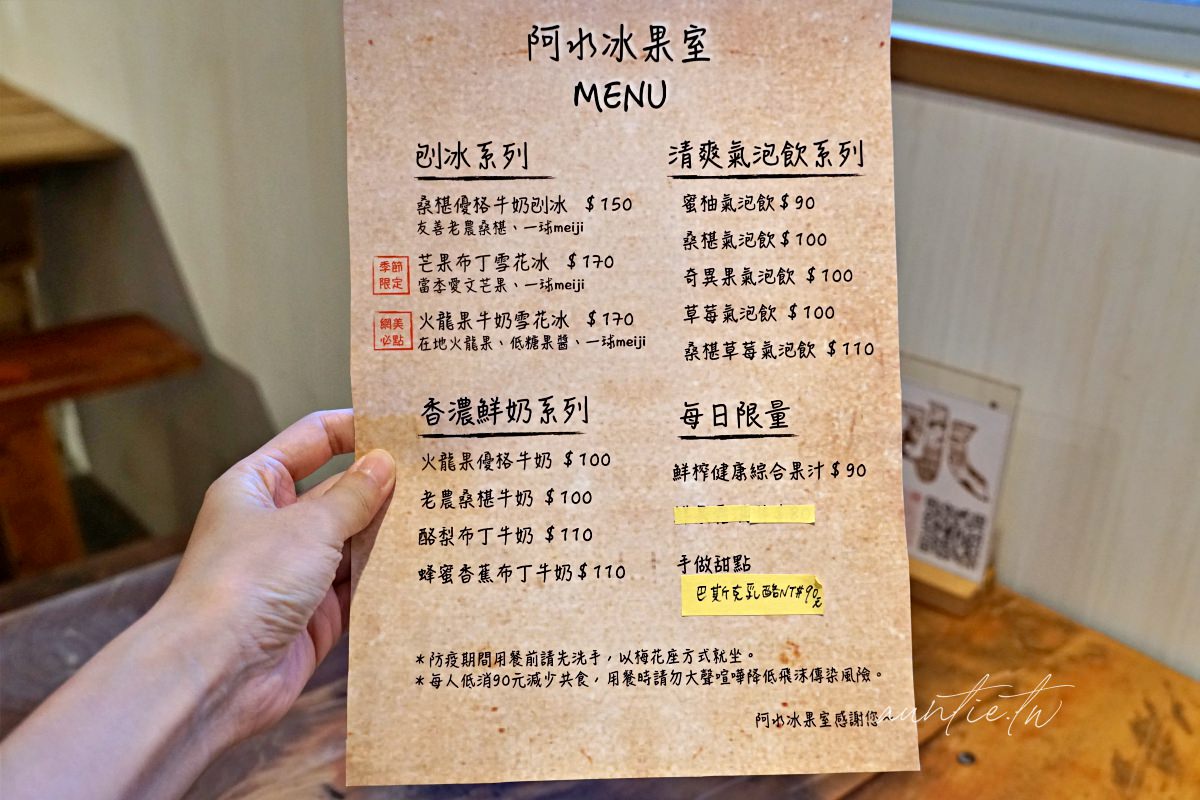 阿水冰果室
MENU
刨冰系列
桑椹優格牛奶刨冰 $150
友善老農桑椹、一球meiji
季節
限定
芒果布丁雪花冰 $170
當季愛文芒果、一球meiji
網美
必點
火龍果牛奶雪花冰 $170
在地火龍果、低糖果醬、一球meiji
香濃鮮奶系列
火龍果優格牛奶 $100
老農桑椹牛奶 $100
酪梨布丁牛奶 $110
蜂蜜香蕉布丁牛奶 $110
清爽氣泡飲系列
蜜柚氣泡飲 $90
桑椹氣泡飲 $100
奇異果氣泡飲 $100
草莓氣泡飲 $100
桑椹草莓氣泡飲 $110
每日限量
鮮榨健康綜合果汁 $90
手做甜點
巴斯克乳酪NT$90元
*防疫期間用餐前請先洗手，以梅花座方式就坐。
*每人低消90元減少共食，用餐時請勿大聲喧嘩降低飛沫傳染風險。
阿水冰果室感謝您~
auntie.tw
冰